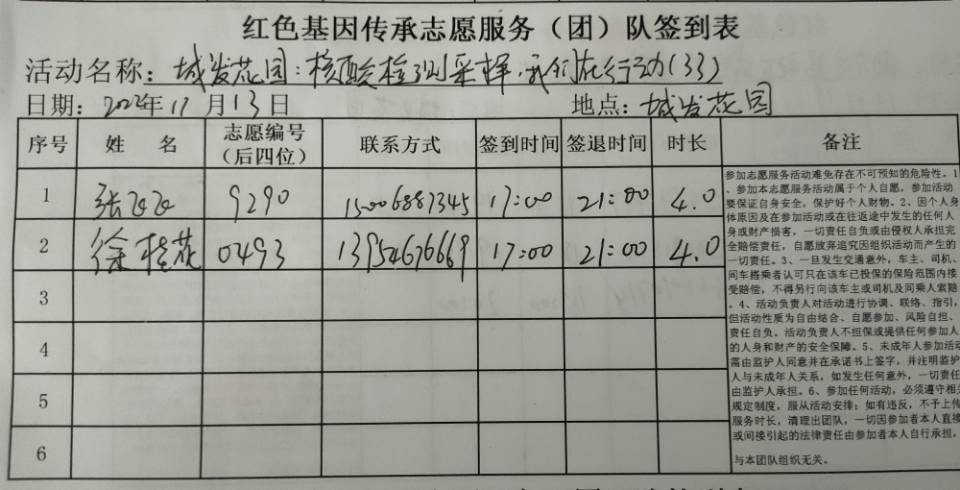 红色基因传承志愿服务（团）队签到表
活动名称：城发花园：核酸检测采样，我们在行动(33)
日期：2022年11月13日 地点：城发花园
序号 姓 名 志愿编号（后四位） 联系方式 签到时间 签退时间 时长 备注
1 张 9290 15006887345 17:00 21:00 4.0
2 徐桂花 0493 13954676669 17:00 21:00 4.0
3
4
5
6
参加志愿服务活动难免存在不可预知的危险性。1
、参加本志愿服务活动属于个人自愿，参加活动
要保证自身安全，保护好个人财物。2、因个人身
体原因及在参加活动或在往返途中发生的任何人
身或财产损害，一切责任自负或由侵权人承担完
全赔偿责任，自愿放弃追究因组织活动而产生的
一切责任。3、一旦发生交通意外，车主、司机、
同车搭乘者认可只在该车已投保的保险范围内接
受赔偿，不得另行向该车主或司机及同乘人索赔
。4、活动负责人对活动进行协调、联络、指引，
但活动性质为自由结合、自愿参加、风险自担、
责任自负。活动负责人不担保或提供任何参加人
的人身和财产的安全保障。5、未成年人参加活动
需由监护人同意并在承诺书上签字，并注明监护
人与未成年人关系，如发生任何意外，一切责任
由监护人承担。6、参加任何活动，必须遵守相关
规定制度，服从活动安排；如有违反，不予上传
服务时长，清理出团队，一切因参加者本人直接
或间接引起的法律责任由参加者本人自行承担，
与本团队组织无关。